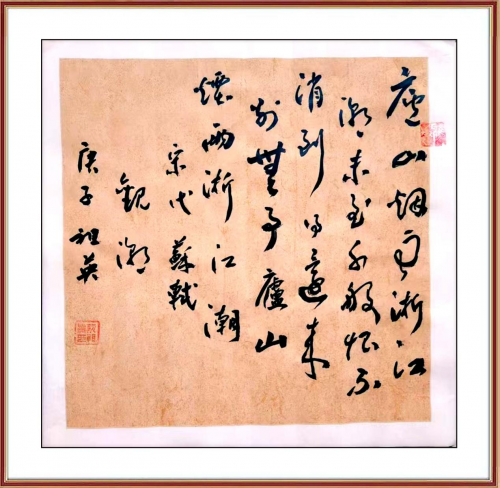 廬山烟雨浙江
潮未至千般恨不
消到得還來
別無事廬山
煙雨浙江潮
宋代蘇軾
觀潮
庚子祖英